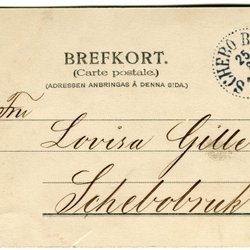 BREFKORT.
(Carte postale.)
(ADRESSEN ANBRINGAS Å DENNA SIDA.)
SCHEBO B
25
Fru
Lovisa Gille
Schebobruk